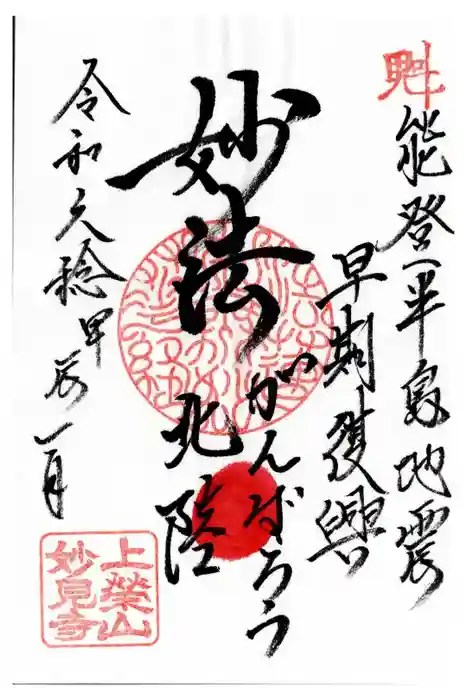 能登半島地震
早期復興
妙法
がんばろう
北陸
令和六稔甲辰一月
上榮山
妙見寺